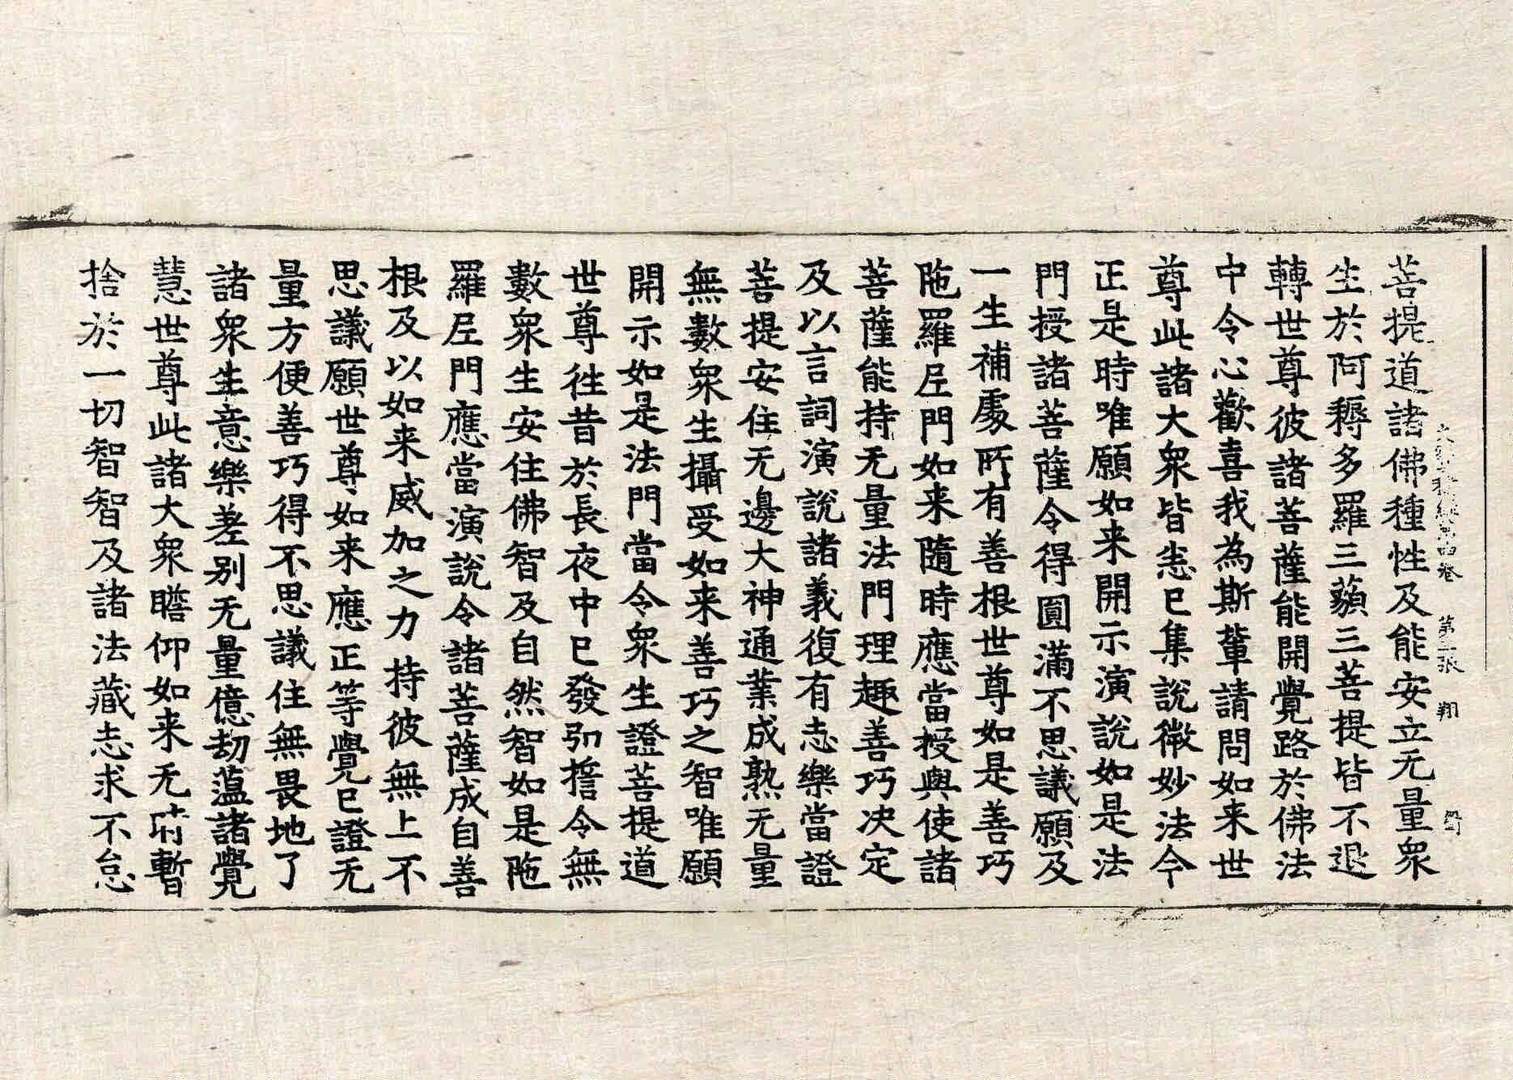 經第四卷　第　張　翔
菩提道諸佛種性及能安立无量衆
生於阿耨多羅三藐三菩提皆不退
轉世尊彼諸菩薩能開覺路於佛法
中令心歡喜我為斯輩請問如来世
尊此諸大衆皆悉已集說微妙法今
正是時唯願如来開示演說如是法
門授諸菩薩令得圓滿不思議願及
一生補處所有善根世尊如是善巧
陁羅尼門如来隨時應當授與使諸
菩薩能持无量法門理趣善巧决定
及以言詞演說諸義復有志樂當證
菩提安住无邊大神通業成熟无量
無數衆生攝受如来善巧之智唯願
開示如是法門當令衆生證菩提道
世尊往昔於長夜中已發弘擔令無
數衆生安住佛智及自然智如是陁
羅尼門應當演說令諸菩薩成自善
根及以如来威加之力持彼無上不
思議願世尊如来應正等覺已證无
量方便善巧得不思議住無畏地了
諸衆生意樂差别无量億劫薀諸覺
慧世尊此諸大衆瞻仰如来无時暫
捨於一切智智及諸法藏志求不怠